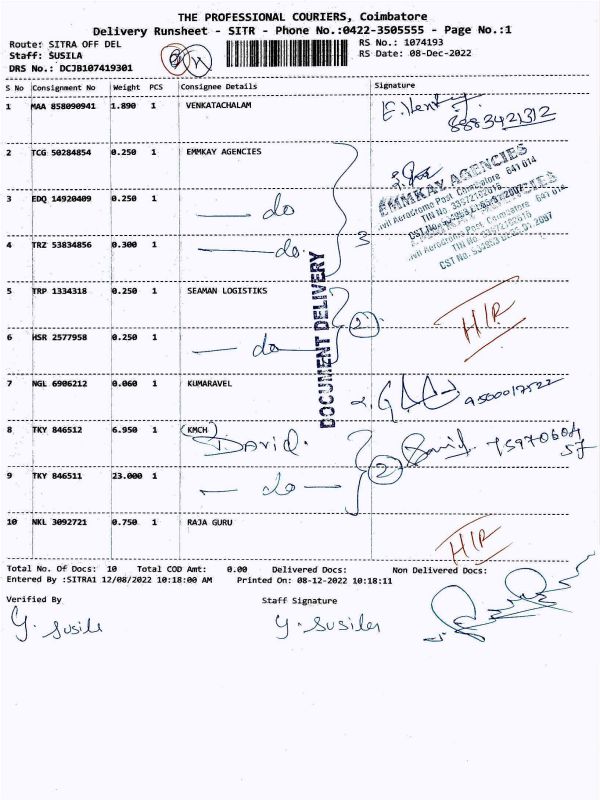 THE PROFESSIONAL COURIERS, Coimbatore
Delivery Runsheet - SITR - Phone No.:0422-3505555 - Page No.:1
Route: SITRA OFF DEL RS No.: 1074193
Staff: SUSILA RS Date: 08-Dec-2022
DRS No.: DCJB107419301
S No Consignment No Weight PCS Consignee Details Signature
1 MAA 858090941 1.890 1 VENKATACHALAM
8883421312
2 TCG 50284854 0.250 1 EMMKAY AGENCIES
EMMKAY AGENCIES
Civil Aerodrome Post, Coimbatore 641 014
3 EDQ 14920409 0.250 1 — do
4 TRZ 53834856 0.300 1 — do. 3
DOCUMENT DELIVERY
5 TRP 1334318 0.250 1 SEAMAN LOGISTIKS
2 HIR
6 HSR 2577958 0.250 1 — do
7 NGL 6906212 0.060 1 KUMARAVEL 9500017522
8 TKY 846512 6.950 1 (KMCH) David.
David. 75970604
57
9 TKY 846511 23.000 1 — do — 2
10 NKL 3092721 0.750 1 RAJA GURU HIR
Total No. Of Docs: 10 Total COD Amt: 0.00 Delivered Docs: Non Delivered Docs:
Entered By :SITRA1 12/08/2022 10:18:00 AM Printed On: 08-12-2022 10:18:11
Verified By Staff Signature
Y. Susila Y. Susila